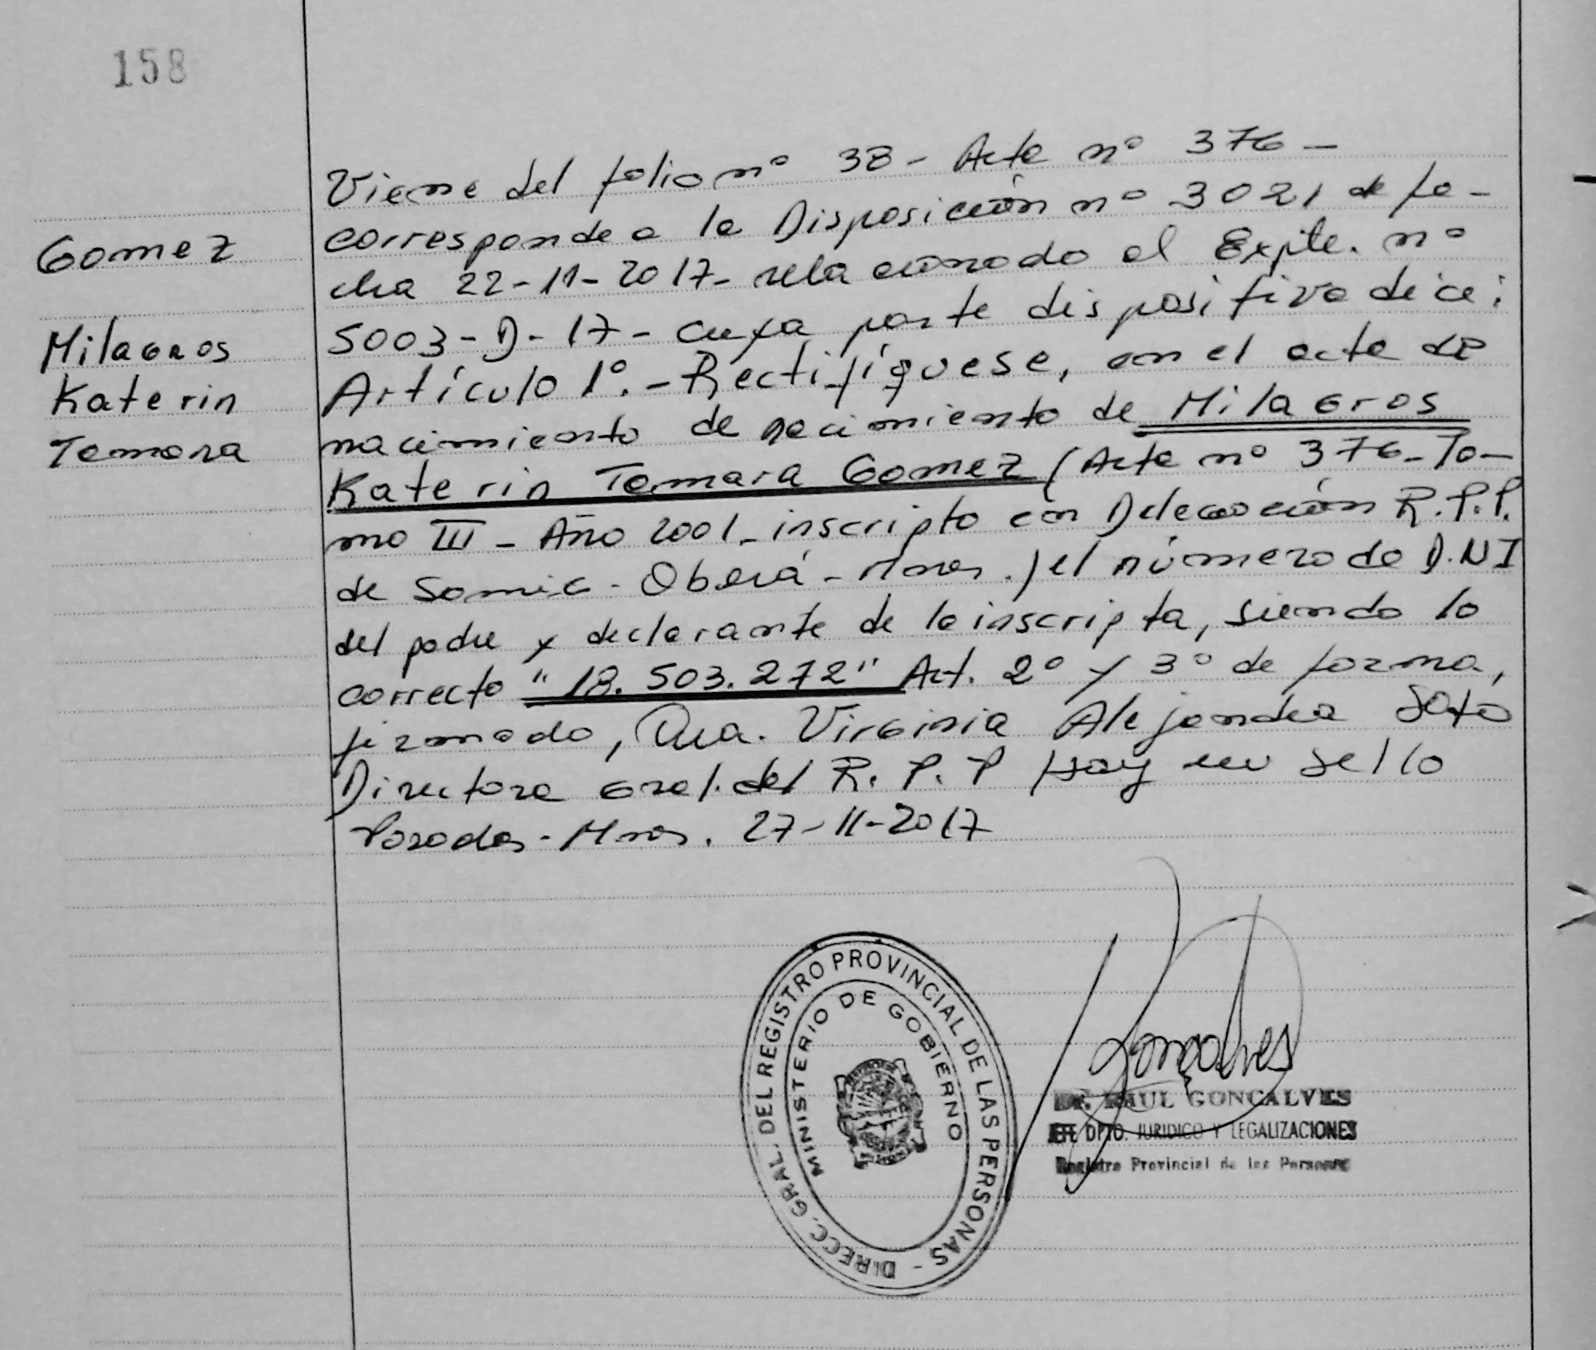 158
Gomez
Milagros
Katerin
Tamara
Viene del folio nº 38 - Acta nº 376 -
corresponde a la Disposición nº 3021 de fe-
cha 22-11-2017- relacionado al Expte. nº
5003-D-17- cuya parte dispositiva dice:
Artículo 1º.- Rectifíquese, en el acta de
nacimiento de nacimiento de Milagros
Katerin Tamara Gomez (Acta nº 376-To-
mo III - Año 2001- inscripto en Delegación R.P.P.
de Samic - Oberá - Mnes.) el número de D.N.I
del padre y declarante de la inscripta, siendo lo
correcto "18.503.272" Art. 2º y 3º de forma,
firmado, Dra. Virginia Alejandra Soto
Directora Gral. del R.P.P Hay un sello
Posadas - Mnes. 27-11-2017
DIRECC. GRAL. DEL REGISTRO PROVINCIAL DE LAS PERSONAS -
MINISTERIO DE GOBIERNO
Gonçalves
Dr. RAUL GONCALVES
JEFE DPTO. JURIDICO Y LEGALIZACIONES
Registro Provincial de las Personas